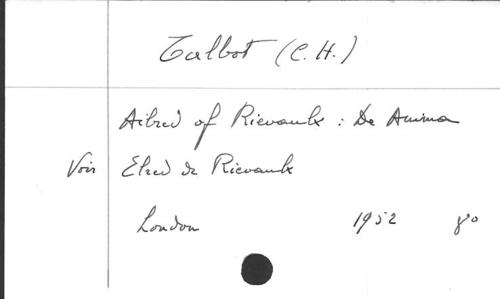 Talbot (C.H.)
Ailred of Rievaulx : De Anima
Voir Elred de Rievaulx
London 1952 8º